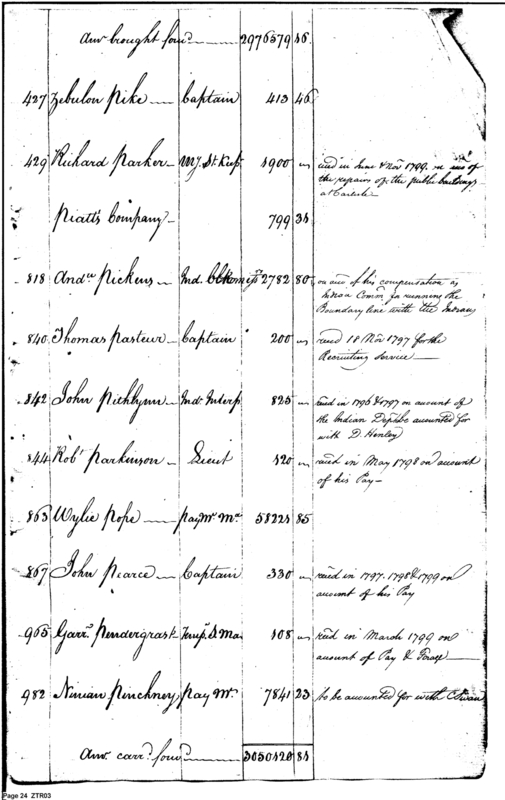 Amt. brought forwd. 2976579 46
427 Zebulon Pike Captain 413 46
429 Richard Parker Mj. St. Keep. 1900 " recd in June & Novr 1799 on acct. of
the repairs of the public buildings
at Carlisle
Piatt's Company 799 34
818 Andw Pickens Ind. Comiss. 2782 80 on acct of his compensation as
Indian Commr. in running the
Boundary line with the Indians
840 Thomas Pasteur Captain 200 " recd 18 Novr 1797 for the
Recruiting Service
842 John Pichlynn Indn. Interp. 825 " recd in 1796 & 1797 on account of
the Indian Dept. to be accounted for
with D. Henley
844 Robt Parkinson Lieut 120 " recd in May 1798 on account
of his Pay
863 Wylie Pope pay Mr. 58224 85
867 John Pearce Captain 330 " recd in 1797. 1798 & 1799 on
account of his Pay
965 Garrt. Pendergrast 108 " recd in March 1799 on
account of Pay & Forage
982 Ninian Pinchney pay Mr. 7841 23 to be accounted for with C Swan
Amt. carrd. forwd. 3050420 84
Page 24 ZTR03